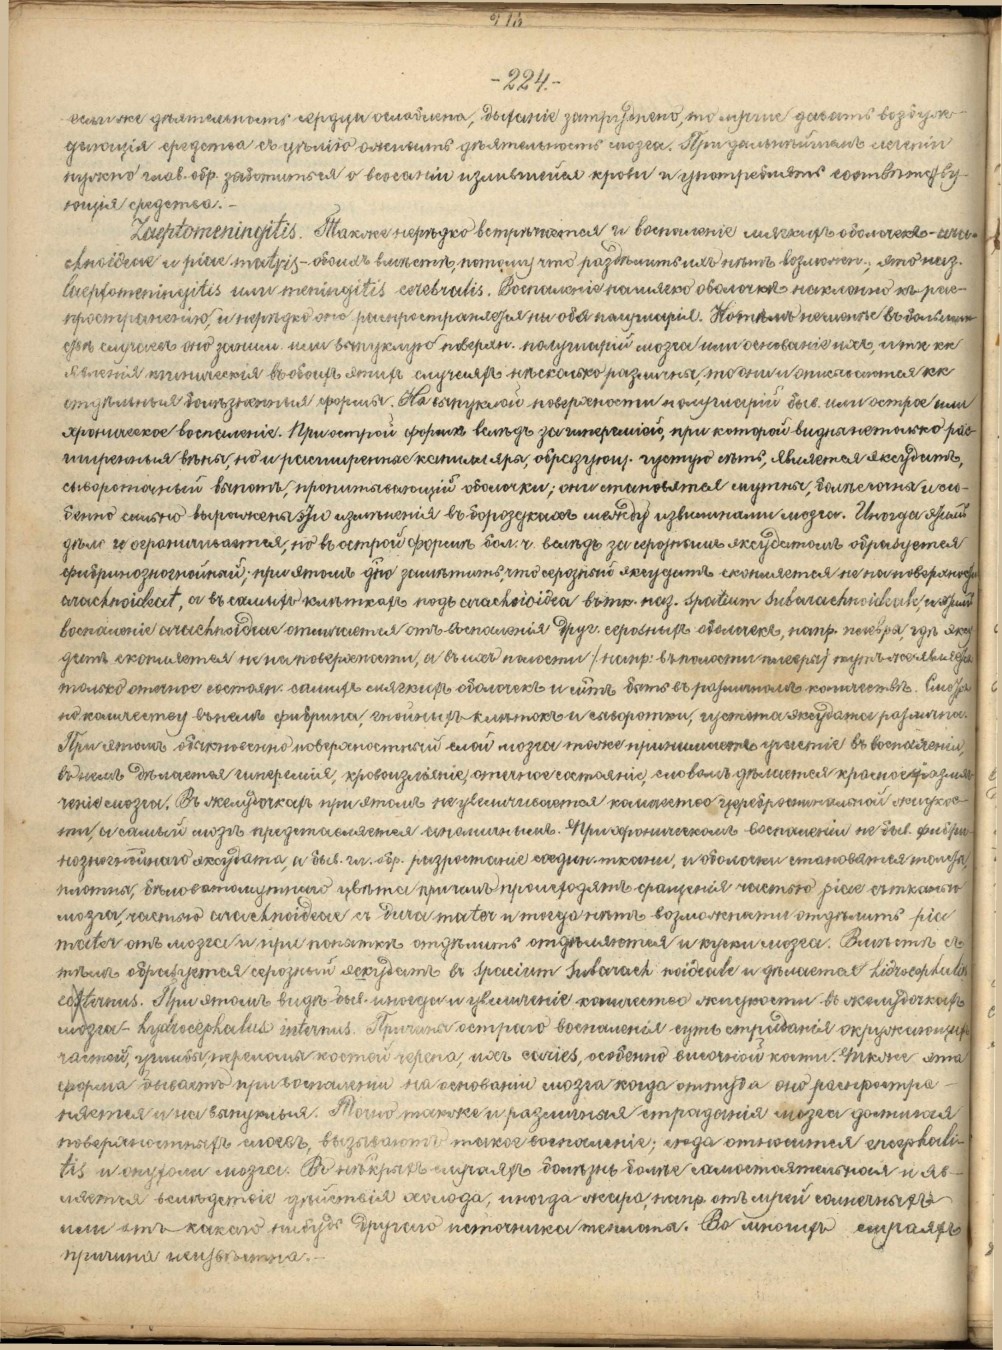 -224.-
если же дѣятельность сердца ослаблена, дыханіе затруднено, то лучше давать возбуж-
дающія средства съ цѣлію оживить дѣятельность мозга. При дальнѣйшемъ леченіи
нужно глав. обр. заботиться о всосаніи излившейся крови и употреблять соотвѣтству-
ющія средства.-
Laeptomeningitis. Также нерѣдко встрѣчается и воспаленіе мягкихъ оболочекъ - ara-
chnoideae и piae matris - обоихъ вмѣстѣ, потому что раздѣлить ихъ нѣтъ возможн.; это наз.
laeptomeningitis или meningitis cerebralis. Воспаленіе на мягкой оболочкѣ наклонно къ рас-
пространенію, и нерѣдко оно распространяется на оба полушарія. Но тѣмъ не менѣе въ большин
ствѣ случаевъ оно заним. или выпуклую поверхн. полушарій мозга или основаніе ихъ, и тк кк
явленія клиническія въ обоихъ этихъ случаяхъ нѣсколько различны, то они и описываются кк
отдѣльныя болѣзненныя формы. На выпуклой поверхности полушарій быв. или острое или
хроническое воспаленіе. При острой формѣ вслѣдъ за гипереміей, при которой видны не только рас-
ширенныя вѣны, но и расширенные капилляры, образующ. густую сѣть, является эксудатъ,
сывороточный выпотъ, пропитывающій оболочки; они становятся мутны, болѣе сочны и осо-
бенно сильно выражены эти измѣненія въ бороздкахъ между извилинами мозга. Иногда этимъ
дѣло и ограничивается, но въ острой формѣ бол. ч. вслѣдъ за серознымъ эксудатомъ образуется
фибринозногнойный; при этомъ ндо замѣтить, что серозный эксудатъ скопляется не на поверхности
arachnoideae, а въ самыхъ клѣткахъ подъ arachnoidea въ тк. наз. spatium subarachnoideale и этимъ
воспаленіе arachnoideae отличается отъ воспаленія друг. серозныхъ оболочекъ, напр. плевры, гдѣ эксу
датъ скопляется не на поверхности, а въ ихъ полости (напр. въ полости плевры) тутъ же является
только отечное состоян. самихъ мягкихъ оболочекъ и мжтъ быть въ различномъ количествѣ. Смотря
по количеству въ немъ фибрина, гнойныхъ клѣтокъ и сыворотки, густота эксудата различна.
При этомъ обыкновенно поверхностный слой мозга тоже принимаетъ участіе въ воспаленіи,
въ немъ дѣлается гиперемія, кровоизліяніе, отечное состояніе, словомъ дѣлается красное размяг
ченіе мозга. Въ желудочкахъ при этомъ не увеличивается количество цереброспинальной жидкос-
ти, а самый мозгъ представляется анемичнымъ. При хроническомъ воспаленіи не быв. фибри-
нозногнойнаго эксудата, а быв. гл. обр. разростаніе соедин. ткани, и оболочки становятся толсты,
плотны, бѣловатомутнаго цвѣта причемъ происходятъ сращенія частью piae съ тканью
мозга, частью arachnoideae съ dura mater и тогда нѣтъ возможности отдѣлить pia
mater отъ мозга и при попыткѣ отдѣлить отдѣляются и куски мозга. Вмѣстѣ съ
тѣмъ образуется серозный эскудатъ въ spacium subarachnoideale и дѣлается hidrocephalus
externus. При этомъ видѣ быв. иногда и увеличеніе количество жидкости въ желудочкахъ
мозга - hydrocephalus internus. Причина остраго воспаленія суть страданія окружающихъ
частей, ушибы, переломы костей черепа, ихъ caries, особенно височной кости. Также эта
форма бываетъ при воспаленіи на основаніи мозга когда оттуда оно распростра-
няется и на выпуклыя. Точно также и различныя страданія мозга достигая
поверхностныхъ слоевъ, вызываютъ такое воспаленіе; сюда относится encephali-
tis и опухоли мозга. Въ нѣкрыхъ случаяхъ болѣзнь болѣе самостоятельная и яв-
ляется вслѣдствіе дѣйствія холода, иногда жара, напр. отъ лучей солнечныхъ
или отъ какаго нибудь другаго источника теплоты. Во многихъ случаяхъ
причина неизвѣстна.-